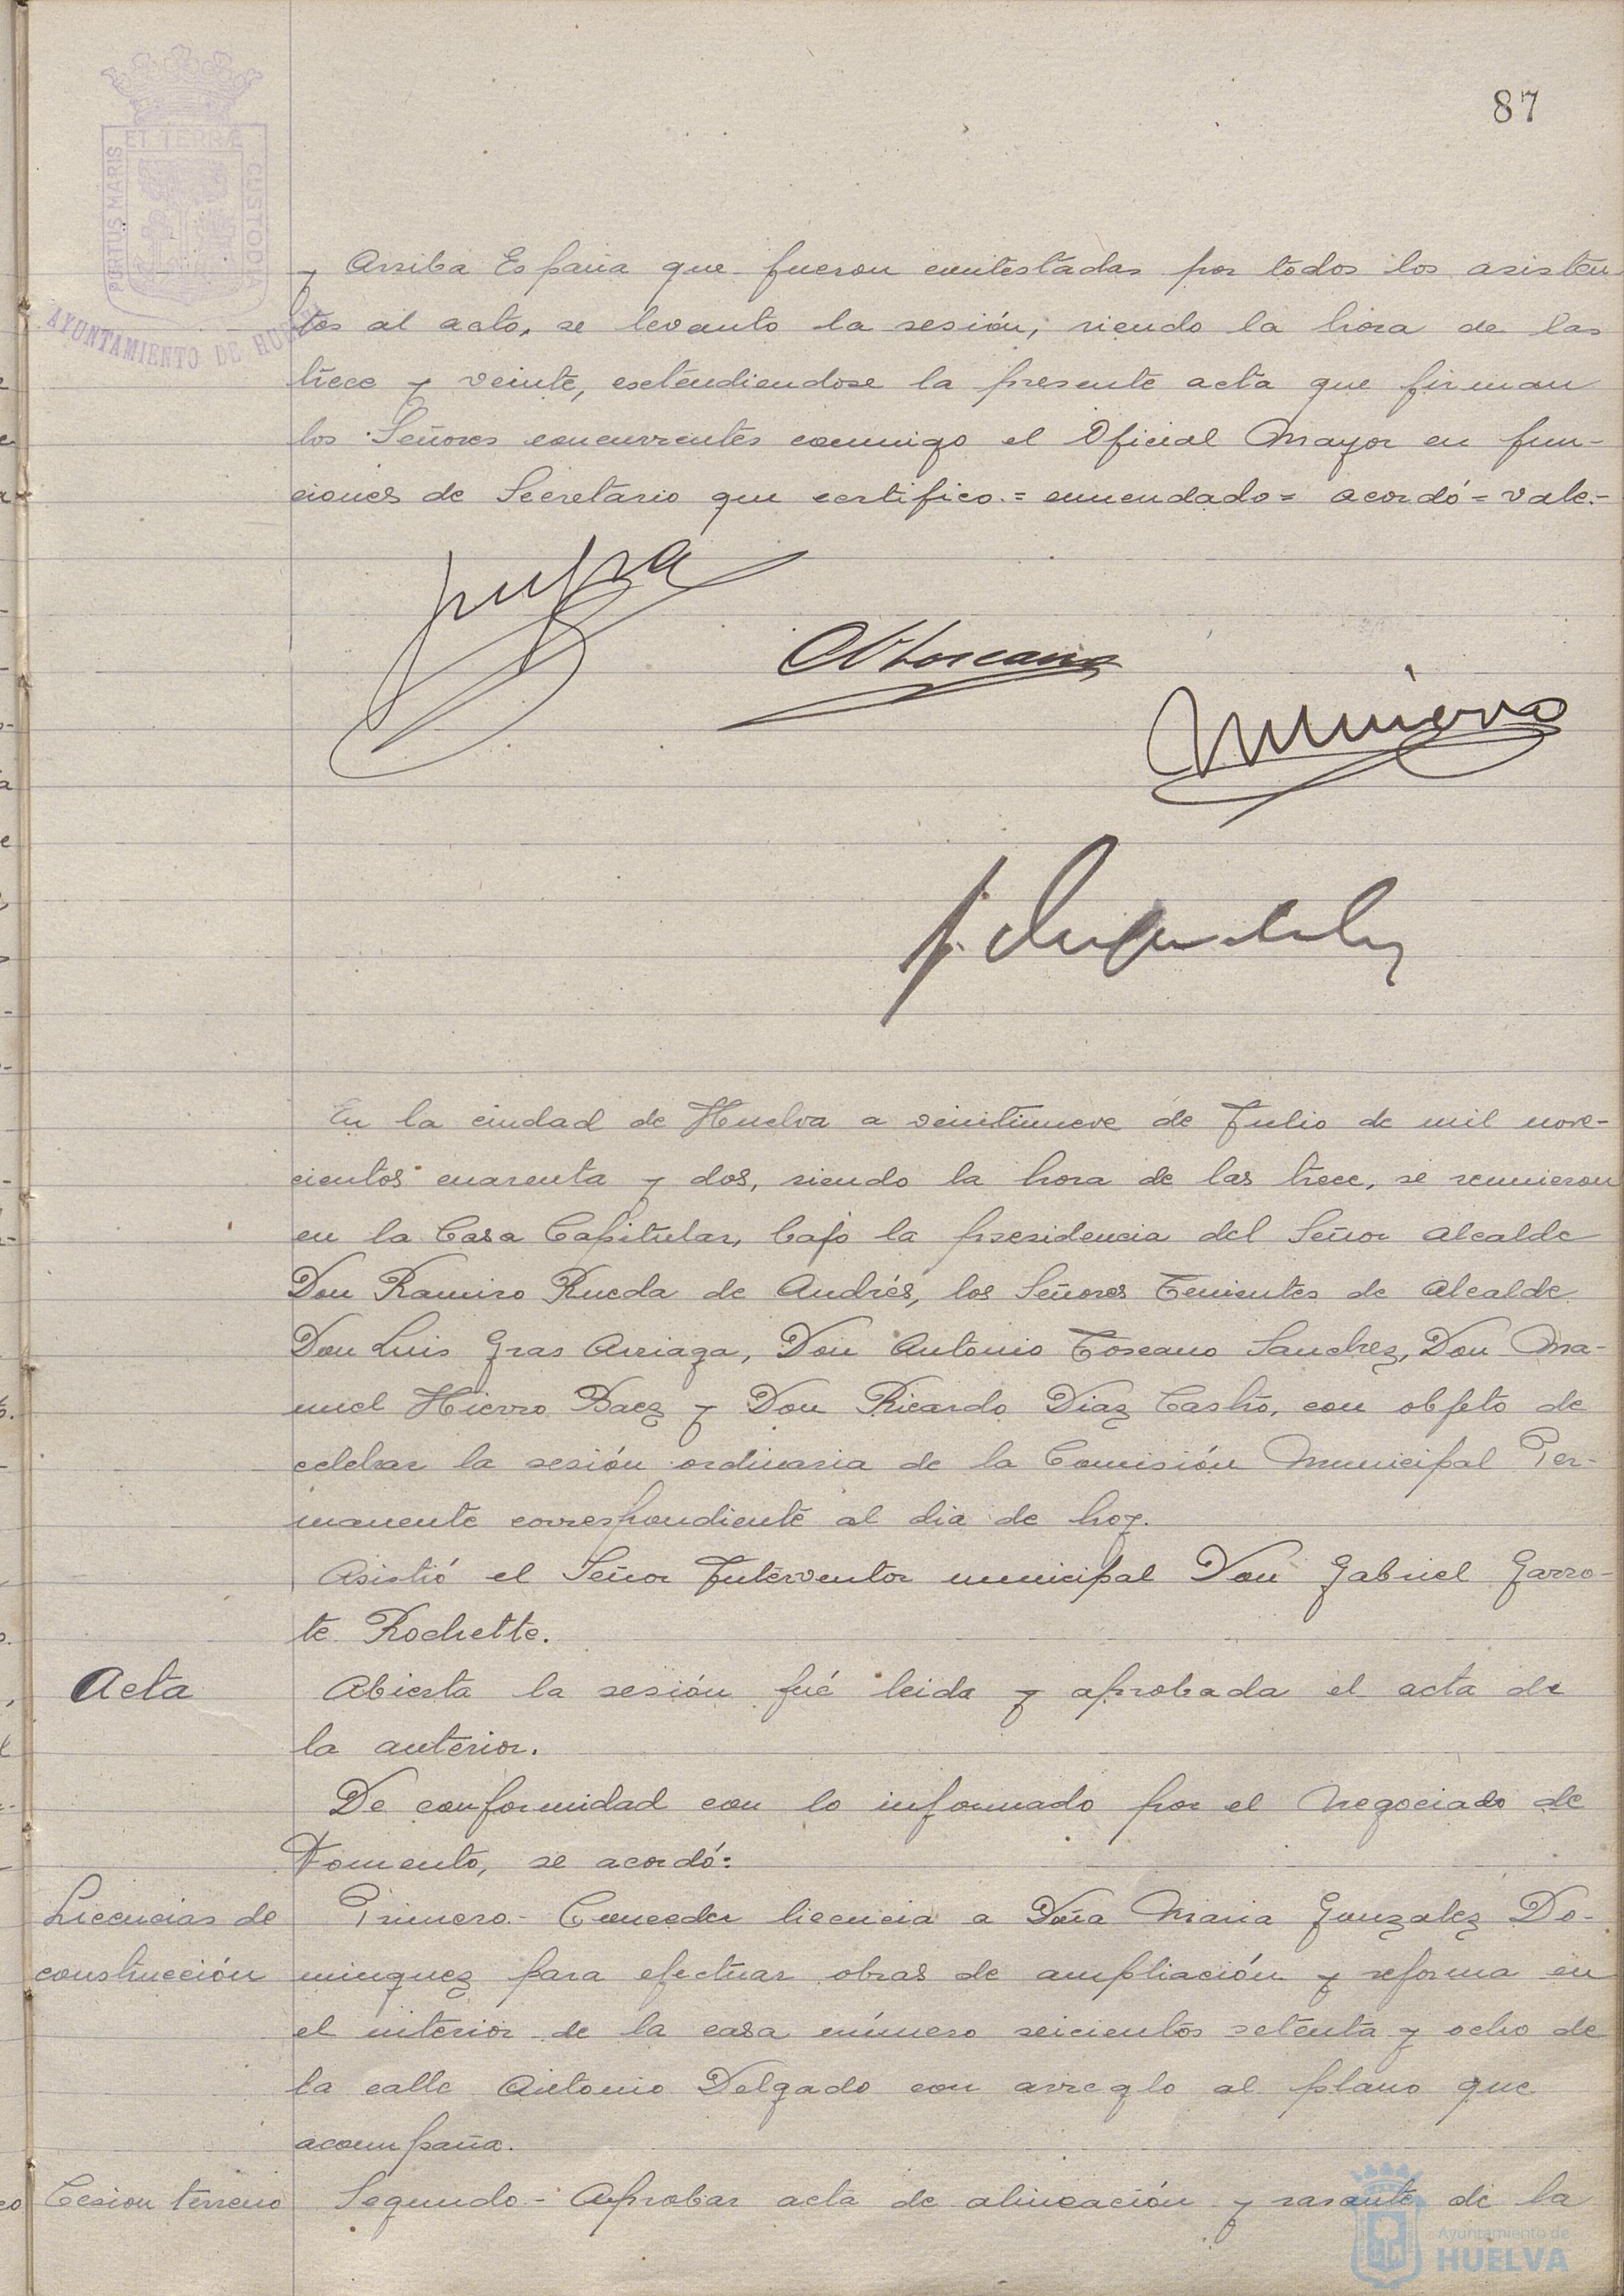 87
PORTUS MARIS
ET TERRÆ
CUSTODIA
AYUNTAMIENTO DE HUELVA
y Arriba España que fueron contestadas por todos los asisten
tes al acto, se levanto la sesión, siendo la hora de las
trece y veinte, extendiendose la presente acta que firman
los Señores concurrentes conmigo el Oficial Mayor en fun-
ciones de Secretario que certifico.= enmendado= acordó= vale.-
A Toscano
En la ciudad de Huelva a veintinueve de Julio de mil nove-
cientos cuarenta y dos, siendo la hora de las trece, se reunieron
en la Casa Capitular, bajo la presidencia del Señor Alcalde
Don Ramiro Rueda de Andrés, los Señores Tenientes de Alcalde
Don Luis Gras Arriaga, Don Antonio Toscano Sanchez, Don Ma-
nuel Hierro Baez y Don Ricardo Diaz Castro, con objeto de
celebrar la sesión ordinaria de la Comisión Municipal Per-
manente correspondiente al dia de hoy.
Asistió el Señor Interventor municipal Don Gabriel Garro-
te Rochette.
Acta
Abierta la sesión fué leida y aprobada el acta de
la anterior.
De conformidad con lo informado por el Negociado de
Fomento, se acordó:
Licencias de
construcción
Primero.- Conceder licencia a Doña Maria Gonzalez Do-
minguez para efectuar obras de ampliación y reforma en
el interior de la casa número seicientos setenta y ocho de
la calle Antonio Delgado con arreglo al plano que
acompaña.
Cesion terreno
Segundo.- Aprobar acta de alineación y rasante de la
Ayuntamiento de
HUELVA